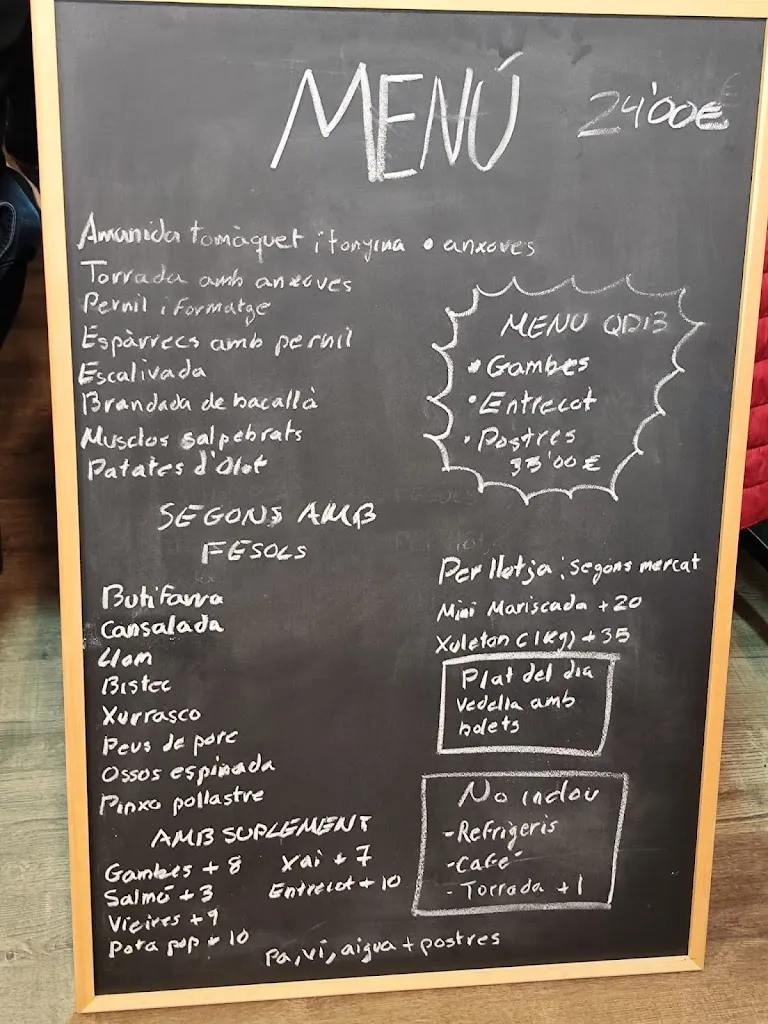 MENÚ
24'00€
Amanida tomàquet i tonyina o anxoves
Torrada amb anxoves
Pernil i Formatge
Espàrrecs amb pernil
Escalivada
Brandada de bacallà
Musclos salpebrats
Patates d'Olot
MENU QDI3
• Gambes
• Entrecot
• Postres
33'00 €
SEGONS AMB
FESOLS
Butifarra
Cansalada
Llom
Bistec
Xurrasco
Peus de porc
Ossos espinada
Pinxo pollastre
Per llotja: segons mercat
Mini Mariscada +20
Xuleton (1kg) +35
Plat del dia
Vedella amb
bolets
AMB SUPLEMENT
Gambes +8
Xai +7
Salmó +3
Entrecot +10
Vieires +9
Pota pop + 10
No inclou
- Refrigeris
- Café
- Torrada +1
Pa, vi, aigua + postres